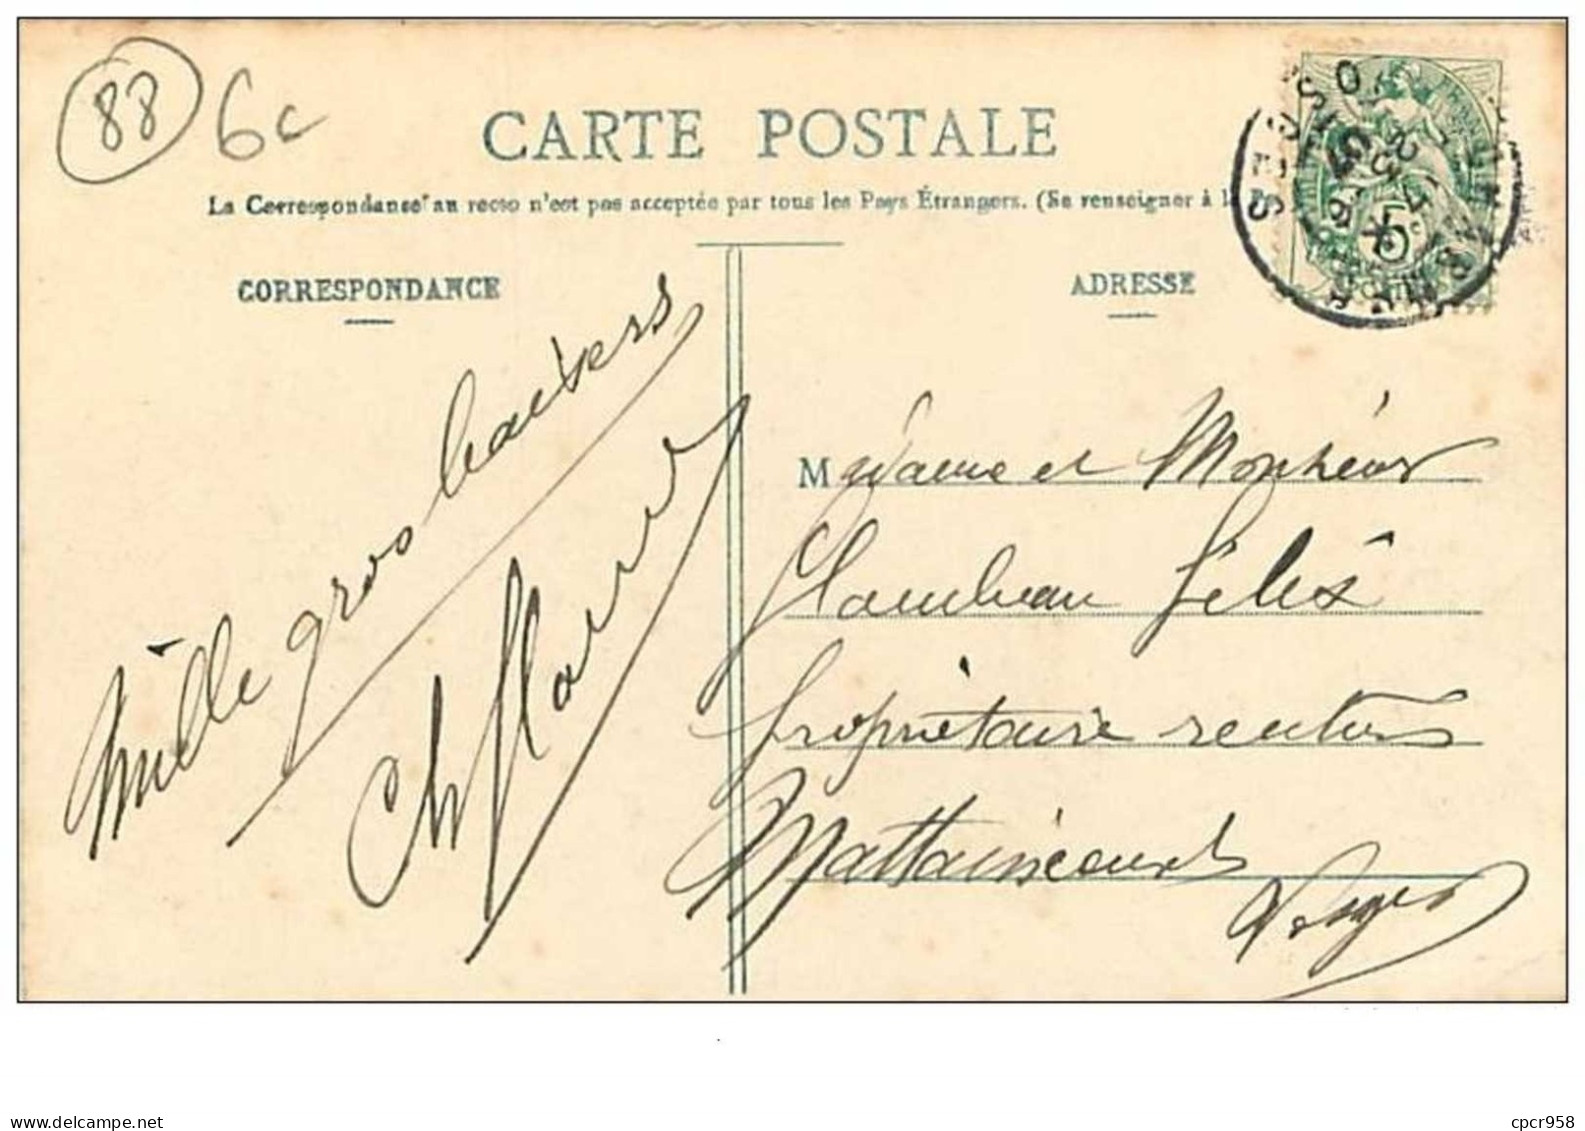 88
6c
CARTE POSTALE
La Correspondance au recto n'est pas acceptée par tous les Pays Étrangers. (Se renseigner à la Po
CORRESPONDANCE
ADRESSE
5
Mille gros baisers
Madame et Monsieur
Félix
propriétaire rentiers
Mattaincourt
Vosges
www.delcampe.net
cpcr958